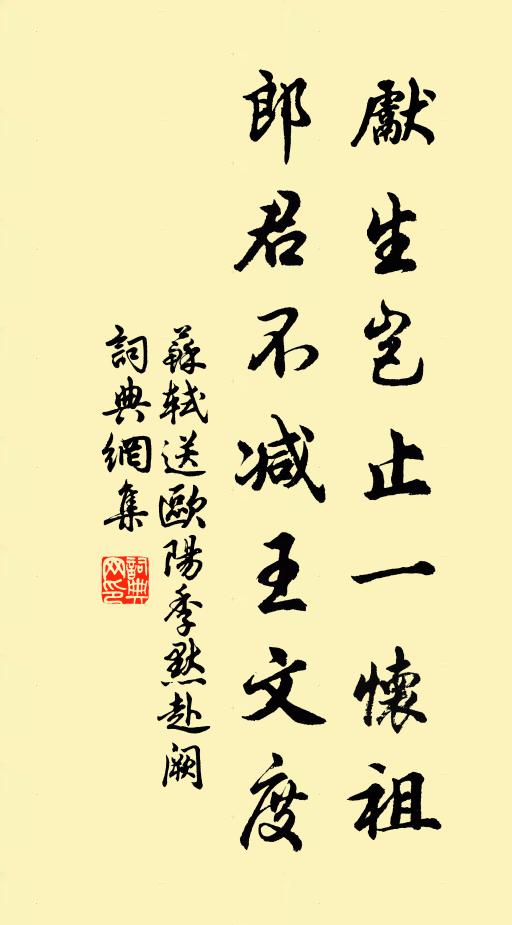 獻生豈止一懷祖
郎君不減王文度
蘇軾送歐陽季默赴闕
詞典網集
詞典网印